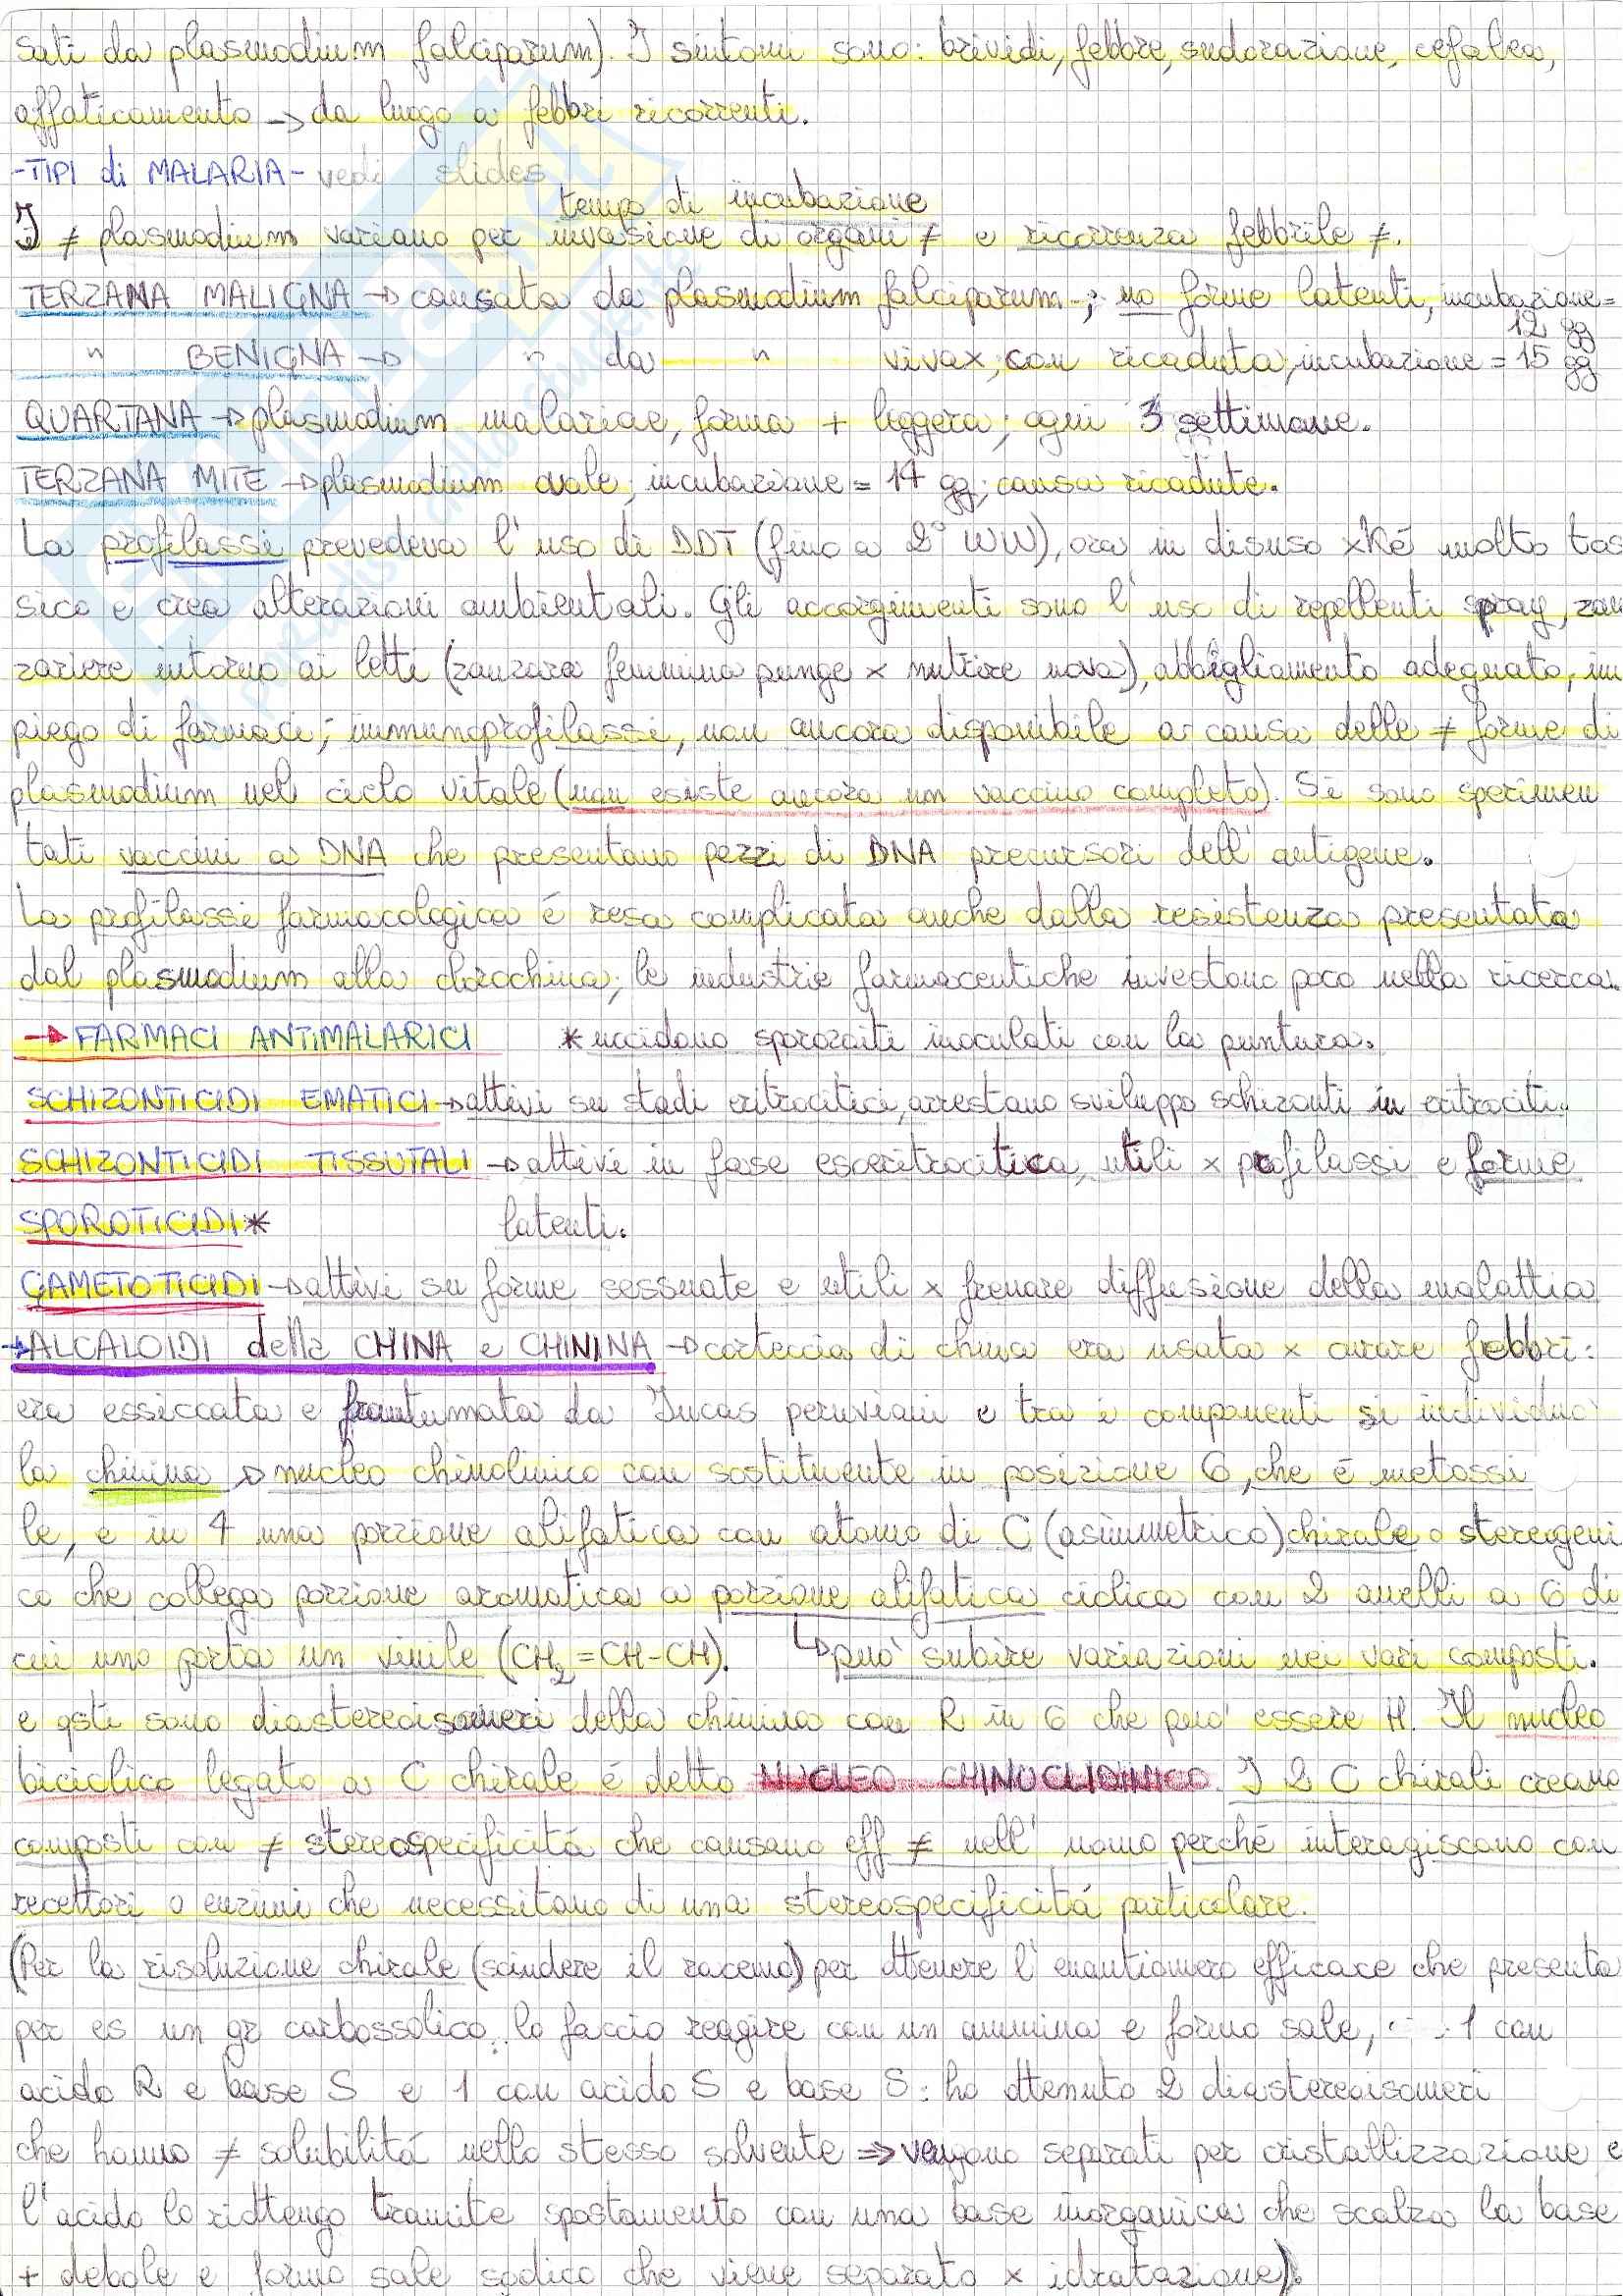 sati da plasmodium falciparum). I sintomi sono: brividi, febbre, sudorazione, cefalea,
affaticamento → da luogo a febbri ricorrenti.
-TIPI di MALARIA- vedi slides
tempo di incubazione
I ≠ plasmodium variano per invasione di organi ≠ e ricorrenza febbrile ≠.
TERZANA MALIGNA → causata da plasmodium falciparum; no forme latenti, incubazione=
12 gg
" BENIGNA → " da " vivax, con ricaduta, incubazione = 15 gg
QUARTANA → plasmodium malariae, forma + leggera; ogni 3 settimane.
TERZANA MITE → plasmodium ovale, incubazione = 14 gg; causa ricadute.
La profilassi prevedeva l'uso di DDT (fino a 2° WW), ora in disuso xké molto tos
sico e crea alterazioni ambientali. Gli accorgimenti sono l'uso di repellenti spray, zan
zariere intorno ai letti (zanzara femmina punge x nutrire uova), abbigliamento adeguato, im
piego di farmaci; immunoprofilassi, non ancora disponibile a causa delle ≠ forme di
plasmodium nel ciclo vitale (non esiste ancora un vaccino completo). Si sono sperimen
tati vaccini a DNA che presentano pezzi di DNA precursori dell'antigene.
La profilassi farmacologica é resa complicata anche dalla resistenza presentata
dal plasmodium alla clorochina; le industrie farmaceutiche investono poco nella ricerca.
→ FARMACI ANTIMALARICI *uccidono sporozoiti inoculati con la puntura.
SCHIZONTICIDI EMATICI → attivi su stadi eritrocitici, arrestano sviluppo schizonti in eritrociti.
SCHIZONTICIDI TISSUTALI → attivi in fase esoeritrocitica, utili x profilassi e forme
SPOROTICIDI* latenti.
GAMETOTICIDI → attivi su forme sessuate e utili x frenare diffusione della malattia
→ ALCALOIDI della CHINA e CHININA → corteccia di china era usata x curare febbri:
era essiccata e frantumata da Incas peruviani e tra i componenti si individuò
la chinina → nucleo chinolinico con sostituente in posizione 6, che é metossi
le, e in 4 una porzione alifatica con atomo di C (asimmetrico) chirale o stereogeni
co che collega porzione aromatica a porzione alifatica ciclica con 2 anelli a 6 di
cui uno porta un vinile (CH2=CH-CH). ↳ può subire variazioni nei vari composti.
e qsti sono diastereoisomeri della chinina con R in 6 che può essere H. Il nucleo
biciclico legato a C chirale é detto NUCLEO CHINUCLIDINICO. I 2 C chirali creano
composti con ≠ stereospecificitá che causano eff ≠ nell'uomo perché interagiscono con
recettori o enzimi che necessitano di una stereospecificitá particolare.
(Per la risoluzione chirale (scindere il racemo) per ottenere l'enantiomero efficace che presenta
per es un gr carbossolico.. lo faccio reagire con un ammina e formo sale, 1 con
acido R e base S e 1 con acido S e base S: ho ottenuto 2 diastereoisomeri
che hanno ≠ solubilitá nello stesso solvente ⇒ vengono separati per cristallizzazione e
l'acido lo riottengo tramite spostamento con una base inorganica che scalza la base
+ debole e formo sale sodico che viene separato x idratazione).